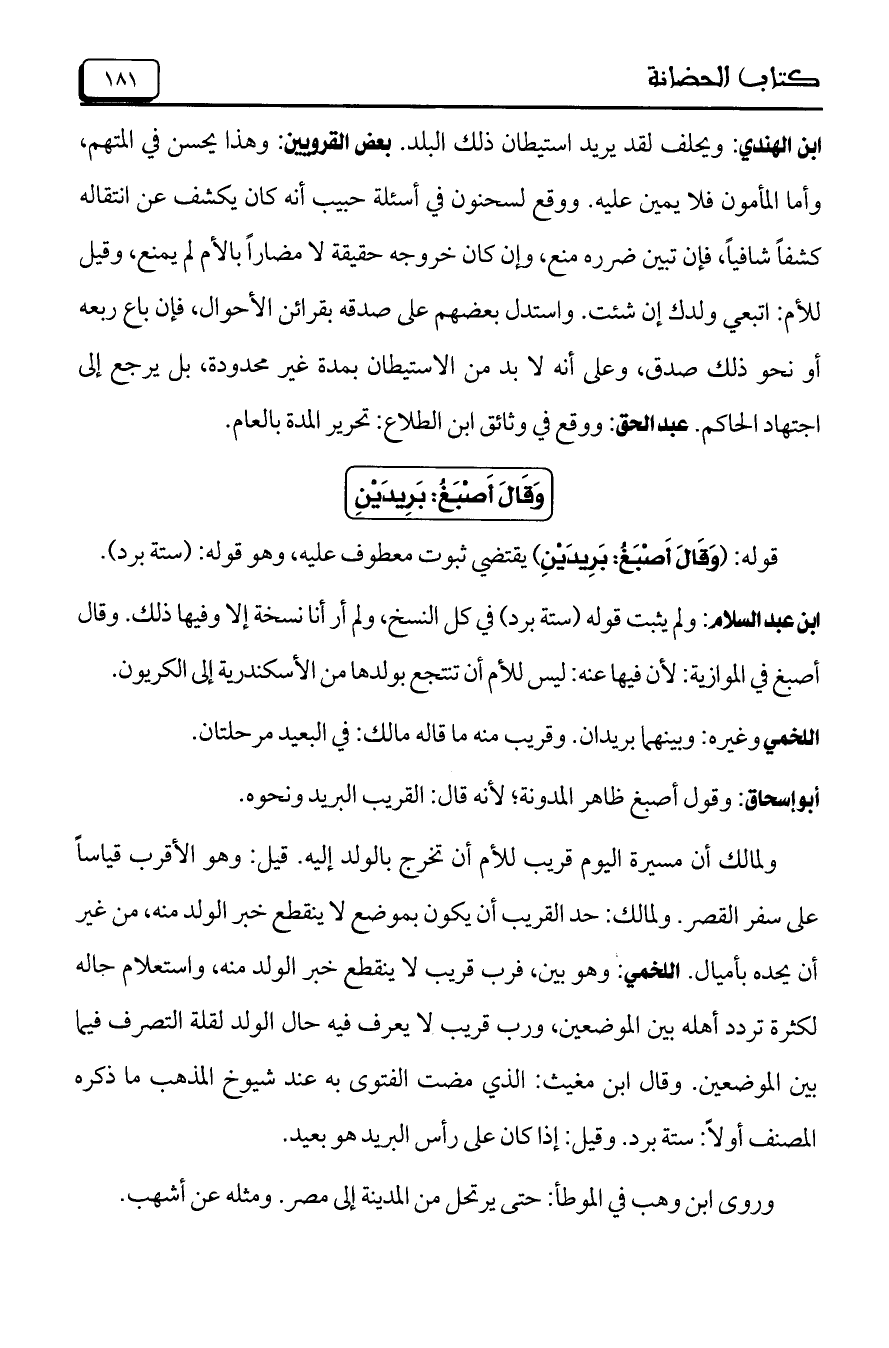 كتاب الحضانة
١٨١
ابن الهندي: ويحلف لقد يريد استيطان ذلك البلد. بعض القرويين: وهذا يحسن في المتهم،
وأما المأمون فلا يمين عليه. ووقع لسحنون في أسئلة حبيب أنه كان يكشف عن انتقاله
كشفاً شافياً، فإن تبين ضرره منع، وإن كان خروجه حقيقة لا مضاراً بالأم لم يمنع، وقيل
للأم: اتبعي ولدك إن شئت. واستدل بعضهم على صدقه بقرائن الأحوال، فإن باع ربعه
أو نحو ذلك صدق، وعلى أنه لا بد من الاستيطان بمدة غير محدودة، بل يرجع إلى
اجتهاد الحاكم. عبد الحق: ووقع في وثائق ابن الطلاع: تحرير المدة بالعام.
وَقَالَ أَصْبَغُ: بَرِيدَيْنِ
قوله: (وَقَالَ أَصْبَغُ: بَرِيدَيْنِ) يقتضي ثبوت معطوف عليه، وهو قوله: (ستة برد).
ابن عبد السلام: ولم يثبت قوله (ستة برد) في كل النسخ، ولم أر أنا نسخة إلا وفيها ذلك. وقال
أصبغ في الموازية: لأن فيها عنه: ليس للأم أن تنتجع بولدها من الأسكندرية إلى الكريون.
اللخمي وغيره: وبينهما بريدان. وقريب منه ما قاله مالك: في البعيد مرحلتان.
أبو إسحاق: وقول أصبغ ظاهر المدونة؛ لأنه قال: القريب البريد ونحوه.
ولمالك أن مسيرة اليوم قريب للأم أن تخرج بالولد إليه. قيل: وهو الأقرب قياساً
على سفر القصر. ولمالك: حد القريب أن يكون بموضع لا ينقطع خبر الولد منه، من غير
أن يحده بأميال. اللخمي: وهو بين، فرب قريب لا ينقطع خبر الولد منه، واستعلام حاله
لكثرة تردد أهله بين الموضعين، ورب قريب لا يعرف فيه حال الولد لقلة التصرف فيما
بين الموضعين. وقال ابن مغيث: الذي مضت الفتوى به عند شيوخ المذهب ما ذكره
المصنف أولاً: ستة برد. وقيل: إذا كان على رأس البريد هو بعيد.
وروى ابن وهب في الموطأ: حتى يرتحل من المدينة إلى مصر. ومثله عن أشهب.